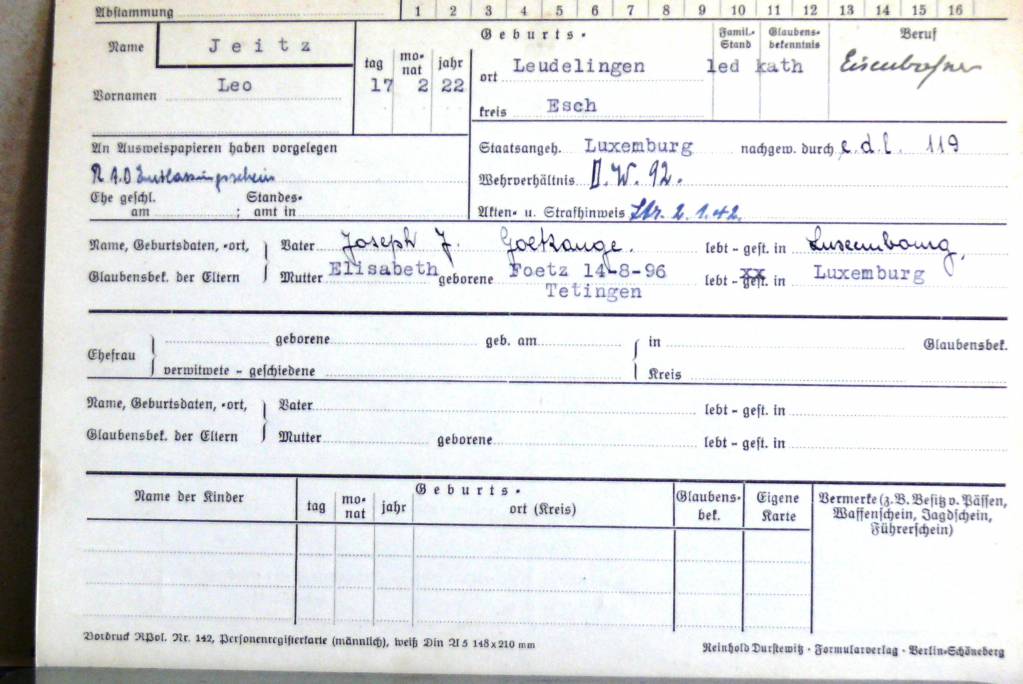 Abstammung 1 2 3 4 5 6 7 8 9 10 11 12 13 14 15 16
Name Jeitz
Vornamen Leo
tag monat jahr
17 2 22
Geburts-
ort Leudelingen
kreis Esch
Famil.-Stand
led
Glaubens-bekenntnis
kath
Beruf
An Ausweispapieren haben vorgelegen
R A D Entlassungsschein
Ehe geschl. Standes-
am ; amt in
Staatsangeh. Luxemburg nachgew. durch e.d.l. 119
Wehrverhältnis D.W. 92.
Akten- u. Strafhinweis Str. 2.1.42.
Name, Geburtsdaten, -ort, Vater Joseph J. Goetzange. lebt - gest. in Luxembourg,
Glaubensbek. der Eltern Mutter Elisabeth geborene Foetz 14-8-96 lebt - gest. in Luxemburg
Tetingen
geborene geb. am in Glaubensbek.
Ehefrau
verwitwete - geschiedene Kreis
Name, Geburtsdaten, -ort, Vater lebt - gest. in
Glaubensbek. der Eltern Mutter geborene lebt - gest. in
Name der Kinder
Geburts-
tag monat jahr ort (Kreis)
Glaubens-
bek.
Eigene
Karte
Vermerke (z. B. Besitz v. Pässen,
Waffenschein, Jagdschein,
Führerschein)
Vordruck RPol. Nr. 142, Personenregisterkarte (männlich), weiß Din A 5 148 x 210 mm
Reinhold Durstewitz · Formularverlag · Berlin-Schöneberg